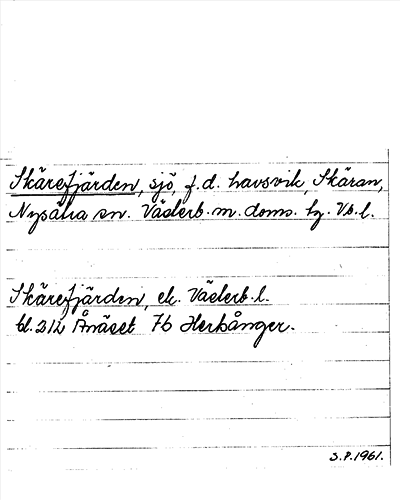 Skärefjärden, sjö, f.d. havsvik, Skäran,
Nysätra sn. Västerb. m. doms. hg. Vb. l.
Skärefjärden, ek. Västerb. l.
bl. 212 Ånäset 76 Herkånger.
S.P. 1961.